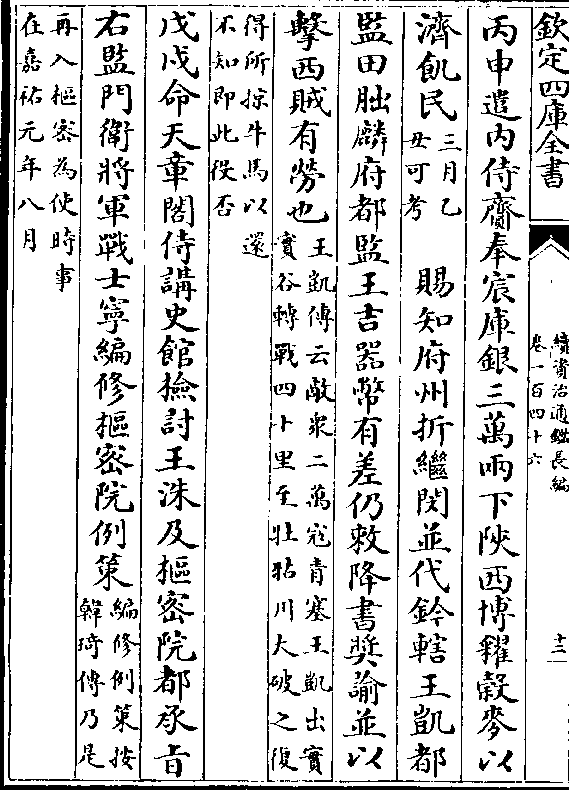 欽定四庫全書
續資治通鑑長編
卷一百四十六
十二
丙申遣内侍齎奉宸庫銀三萬兩下陜西博糴穀麥以
濟飢民
三月乙
丑可考
賜知府州折繼閔並代鈐轄王凱都
監田朏麟府都監王吉器幣有差仍敕降書奬諭並以
擊西賊有勞也
王凱傳云敵衆二萬寇青塞王凱出實
實谷轉戰四十里至杜胋川大破之復
得所掠牛馬以還
不知即此役否
戊戌命天章閣侍講史館撿討王洙及樞密院都承旨
右監門衛將軍戰士寧編修樞密院例策
編修例策按
韓琦傳乃是
再入樞密為使時事
在嘉祐元年八月